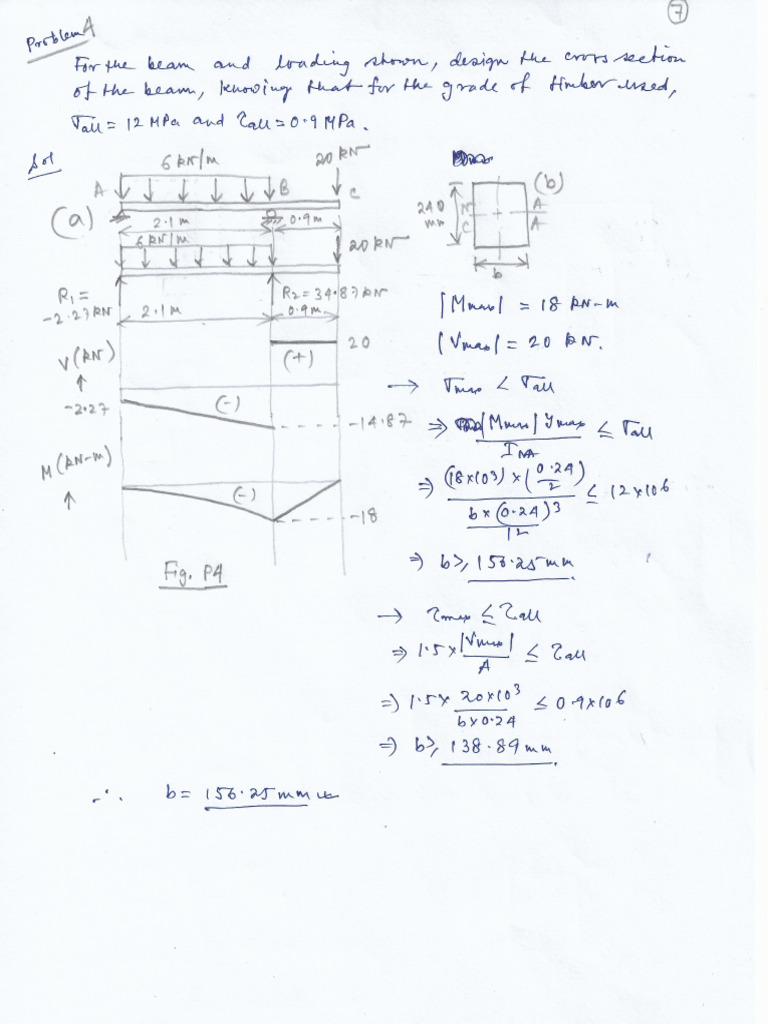 7
Problem 4
For the beam and loading shown, design the cross section
of the beam, knowing that for the grade of timber used,
σall = 12 MPa and τall = 0.9 MPa.
Sol
6 kN/m
20 kN
A
B
C
(a)
2.1 m
0.9 m
6 kN/m
20 kN
R1 =
-2.27 kN
R2 = 34.87 kN
2.1 m
0.9 m
V (kN)
20
(+)
-2.27
(-)
-14.87
M (kN-m)
(-)
-18
Fig. P4
(b)
240
mm
N
A
C
A
b
|Mmax| = 18 kN-m
|Vmax| = 20 kN.
→ σmax < σall
⇒ |Mmax| ymax / INA ≤ σall
⇒ (18×10³) × (0.24/2) / (b × (0.24)³/12) ≤ 12×10⁶
⇒ b ≥, 156.25 mm.
→ τmax ≤ τall
⇒ 1.5 × |Vmax| / A ≤ τall
⇒ 1.5 × 20×10³ / b×0.24 ≤ 0.9×10⁶
⇒ b ≥, 138.89 mm.
∴ b = 156.25 mm